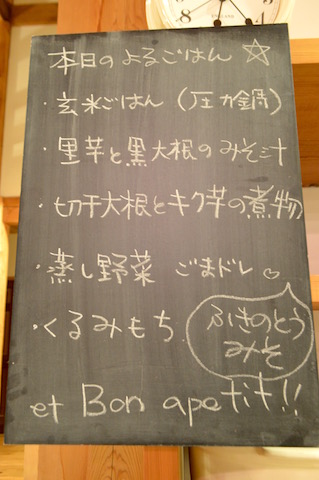 本日のよるごはん ☆
・玄米ごはん (圧力鍋)
・里芋と黒大根のみそ汁
・切干大根とキク芋の煮物
・蒸し野菜 ごまドレ♡
・くるみもち
ふきのとう
みそ
et Bon apetit!!